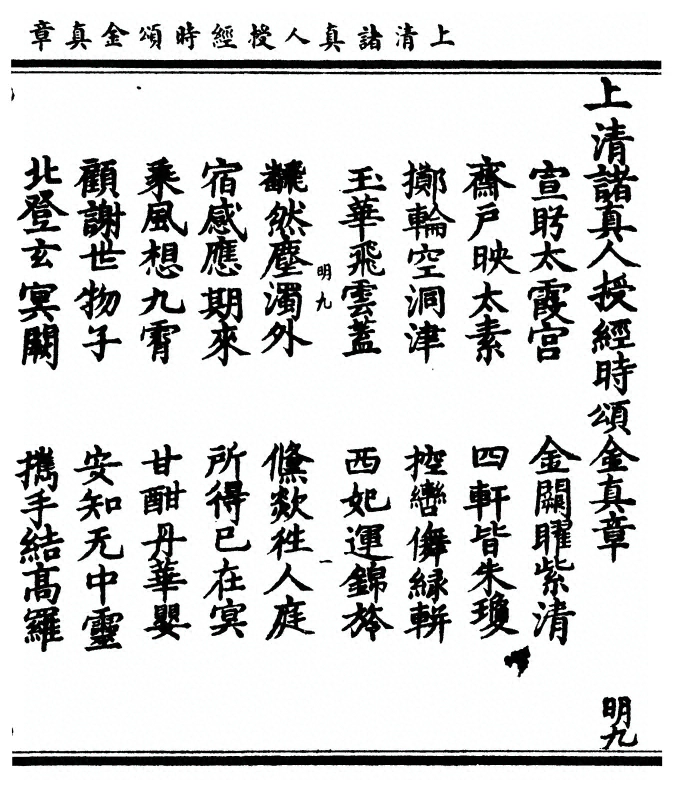 上清諸真人授經時頌金真章
上清諸真人授經時頌金真章 明九
宣盻太霞宮 金闕曜紫清
齋戶映太素 四軒皆朱瓊
擲輪空洞津 控轡儛緑軿
玉華飛雲蓋 西妃運錦旍
明九 一
飜然塵濁外 儵欻往人庭
宿感應期來 所得已在冥
乘風想九霄 甘酣丹華嬰
顧謝世物子 安知无中靈
北登玄冥闕 攜手結高羅